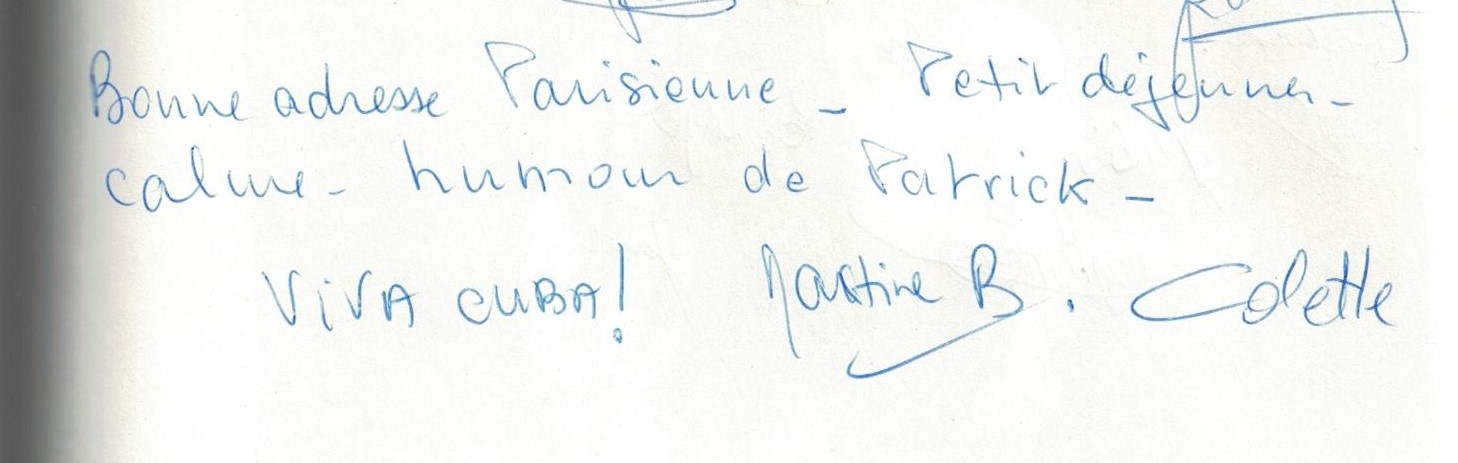 Bonne adresse Parisienne - Petit déjeuner -
calme - humour de Patrick -
VIVA CUBA! Martine B. Colette